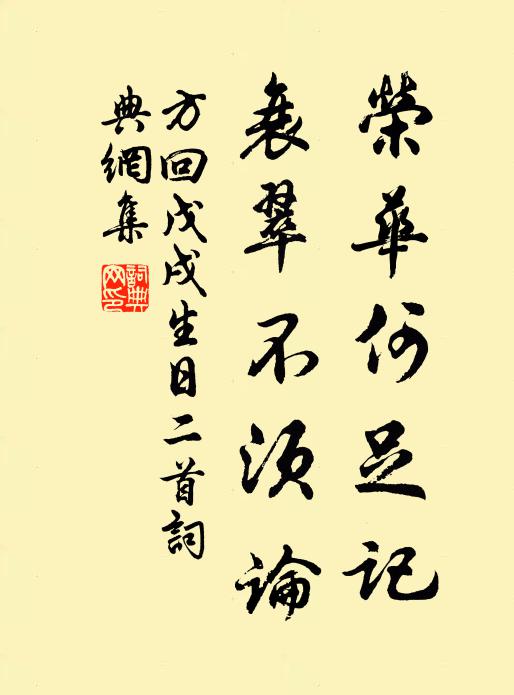 榮華何足記
衰翠不須論
方回戊戌生日二首詞
典網集
詞典
网印